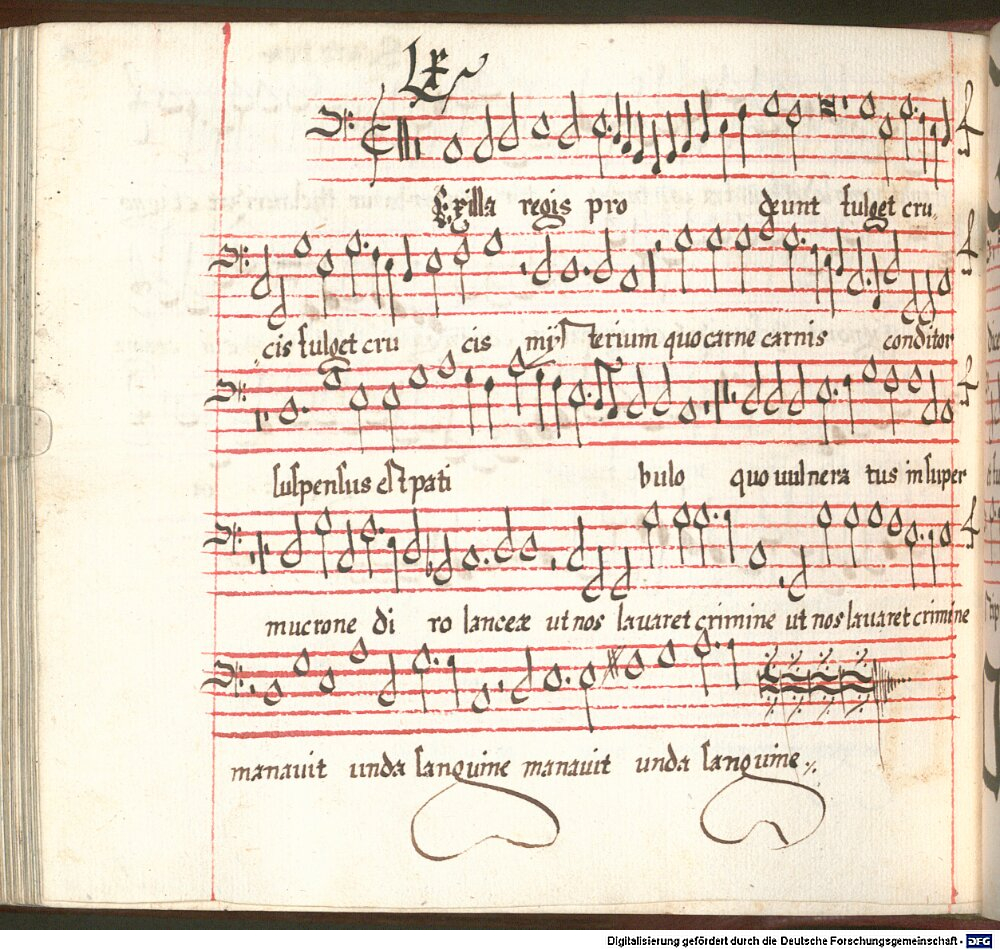 LX
Vexilla regis pro deunt fulget cru
cis fulget cru cis mist terium quo carne carnis conditor
suspensus est pati bulo quo uulnera tus insuper
mucrone di ro lanceæ ut nos lauaret crimine ut nos lauaret crimine
manauit unda sanguine manauit unda sanguine
Digitalisierung gefördert durch die Deutsche Forschungsgemeinschaft - DFG